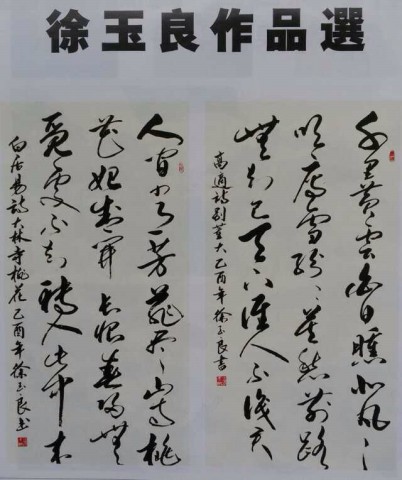 徐玉良作品選
千里黄雲白日曛北風
吹雁雪紛〻莫愁前路
無知己天下誰人不識君
高適詩別董大乙酉年徐玉良書
人間四月芳菲盡山寺桃
花始盛開長恨春歸無
覓處不知轉入此中来
白居易詩大林寺桃花乙酉年徐玉良書